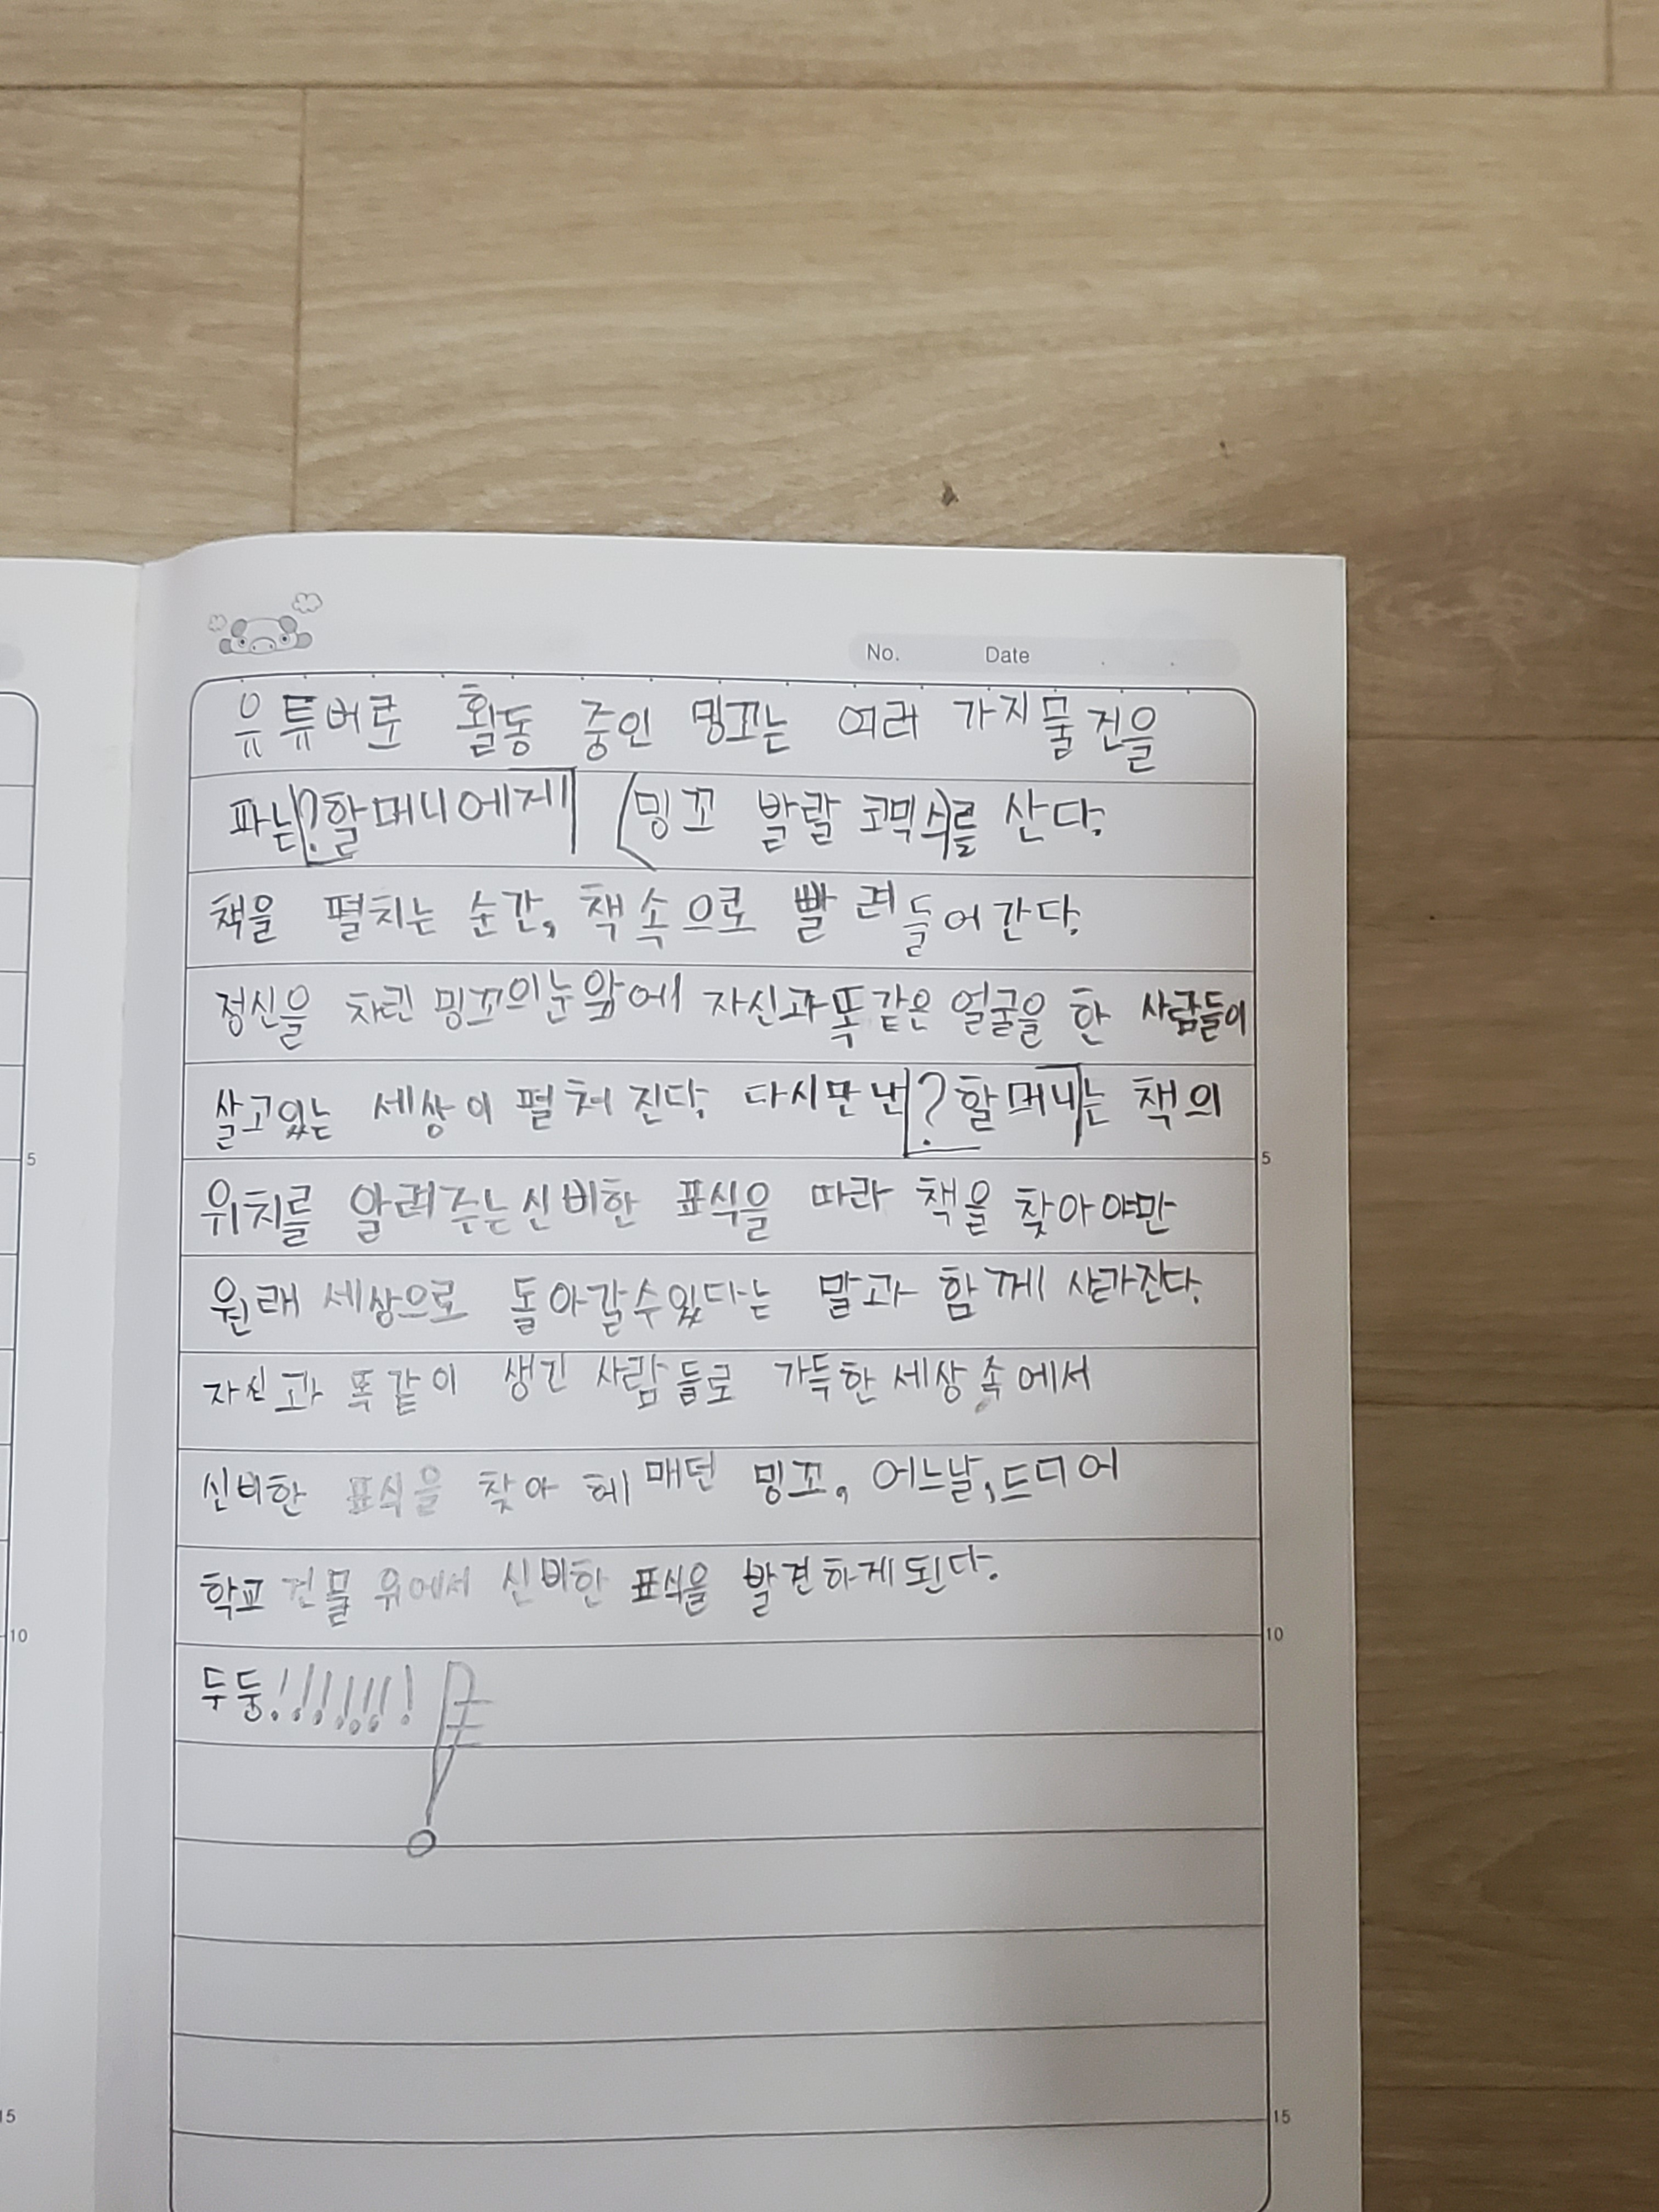 No. Date . .
유튜버로 활동 중인 밍꼬는 여러 가지 물건을
파는 ?할머니에게 (밍꼬 발랄 코믹스)를 산다.
책을 펼치는 순간, 책 속으로 빨려 들어간다.
정신을 차린 밍꼬의 눈 앞에 자신과 똑같은 얼굴을 한 사람들이
살고있는 세상이 펼쳐진다. 다시만난 ?할머니는 책의
위치를 알려주는 신비한 표식을 따라 책을 찾아야만
원래 세상으로 돌아갈수있다는 말과 함께 사라진다.
자신과 똑같이 생긴 사람들로 가득한 세상 속에서
신비한 표식을 찾아 헤매던 밍꼬, 어느날, 드디어
학교 건물 위에서 신비한 표식을 발견하게된다.
두둥!!!!!!!
5
10
15
5
10
15